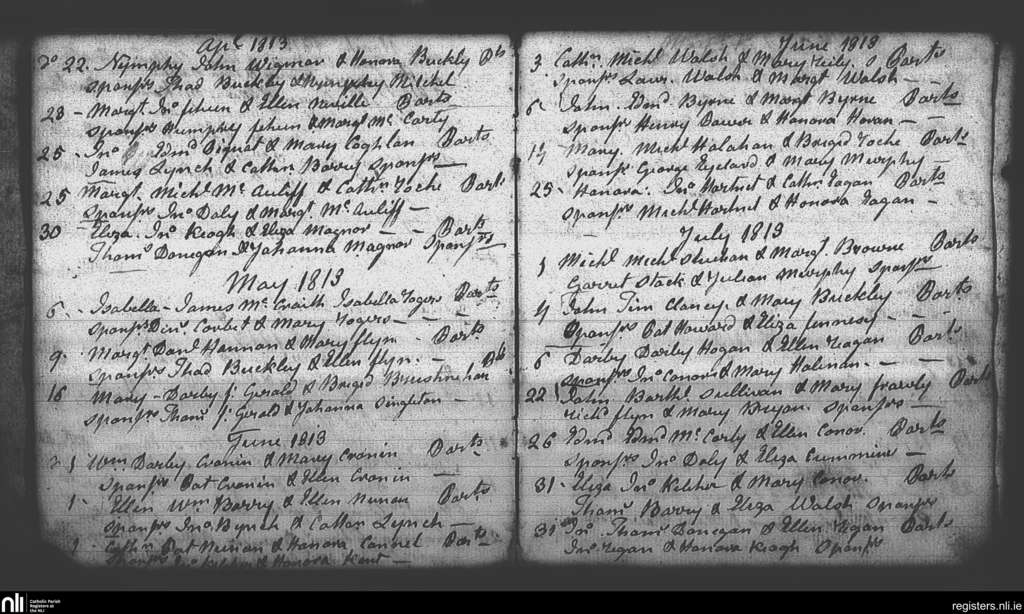 Apl 1813
22. Nymphy John Wigmor & Honora Buckley Pts
Sponsrs Thad Buckley & Nymphy Mitchel
23 - Margt Jno Jehen & Ellen Neville Parts
Sponsrs Humphry Jehen & Margt Mc Carty
25 - Jno Edmd Pignat & Mary Coghlan Parts
James Lynch & Cathrn Barry Sponsrs
25 Margt. Michl Mc Auliff & Cathrn Roche Parts
Sponsrs Jno Daly & Margt. Mc Auliff
30 - Eliza. Jno Keogh & Eliza Magnor Parts
Thams Donegan & Johanna Magnor Sponsrs
May 1813
6 - Isabella - James Mc Craith Isabella Rogers Parts
Sponsrs Dens Corbet & Mary Rogers
9. Margt Danl Hannan & Mary flyn Parts
Sponsrs Thad Buckley & Ellen flyn.
16 Mary - Darby f: Gerald & Brigid Pts
Sponsrs Thams f: Gerald & Johanna Singleton
June 1813
1 Wm Darby Cronin & Mary Cronin Parts
Sponsrs Pat Cronin & Ellen Cronin
1 Ellen Wm Barry & Ellen Nunan Parts
Sponsrs Jno Bynch & Cathrn Lynch
1 Cathrn Pat Nunan & Honora Connel Parts
Sponsrs & Honora Kent
June 1813
3 Cathrn. Michl Walsh & Mary Reily. Parts
Sponsrs Laur. Walsh & Margt Walsh
6 John. Edmd Byrne & Margt Byrne Parts
Sponsrs Henry Bower & Honora Horan
Mary. Michl Halahan & Brigid Roche Parts
Sponsrs George & Mary Murphy
25 Honora. Jno Hartnet & Cathrn Fagan Parts
Sponsrs Michl Hartnet & Honora Fagan
July 1813
Michl Michl Sheenan & Margt. Browne Parts
Garret Stack & Julian Murphy Sponsrs
4 John Tim Clancy. & Mary Buckley Parts
Sponsrs Pat Howard & Eliza
6 Darby Darby Hogan & Ellen Ragan Parts
Sponsrs. Jno Conors & Mary Halinan
22 John Barthl Sullivan & Mary frawly Parts
Richd flyn & Mary Bryan. Sponsrs
26 Edmd Edmd Mc Carty & Ellen Conor. Parts
Sponsrs Jno Daly & Eliza Cummins
31 - Eliza Jno Keliher & Mary Conor. Parts
Thams Barry & Eliza Walsh Sponsrs
31 Jno. Thams Donegan & Ellen Regan Parts
Jno Regan & Honora Keogh Sponsrs
nli
Catholic Parish
Registers at
the NLI
registers.nli.ie